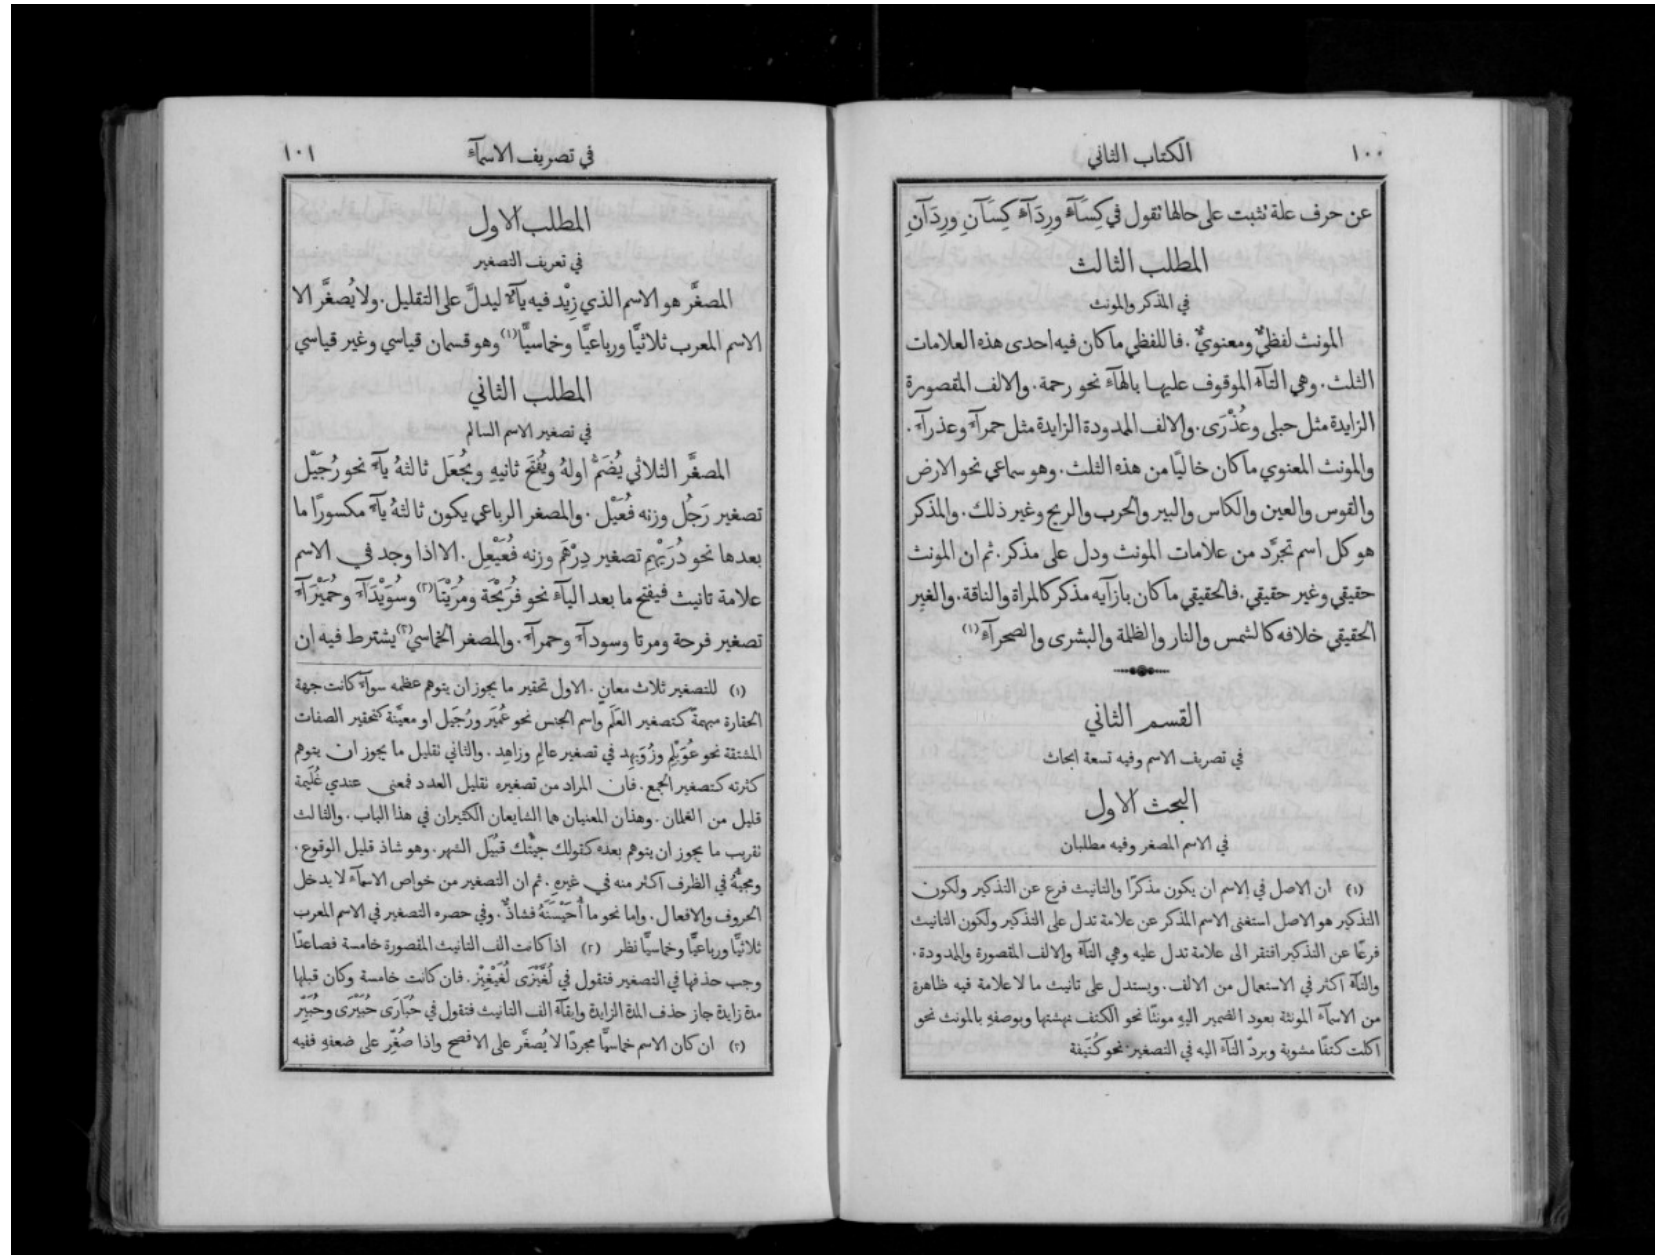 ١٠٠
الكتاب الثاني
عن حرف علة تثبت على حالها تقول في كِسَآءٌ ورِدَآءٌ كِسَآانِ ورِدَآانِ
المطلب الثالث
في المذكر والمونث
المونث لفظيٌّ ومعنويٌّ. فاللفظي ما كان فيه احدى هذه العلامات
الثلث. وهي التآء الموقوف عليها بالهآء نحو رحمة. والالف المقصورة
الزايدة مثل حبلى وعُذْرَى. والالف الممدودة الزايدة مثل حمرآء وعذرآء.
والمونث المعنوي ما كان خاليًا من هذه الثلث. وهو سماعي نحو الارض
والقوس والعين والكاس والبير والحرب والريح وغير ذلك. والمذكر
هو كل اسم تجرَّد من علامات المونث ودل على مذكر. ثم ان المونث
حقيقي وغير حقيقي. فالحقيقي ما كان بازآيه مذكر كالمراة والناقة. والغير
الحقيقي خلافه كالشمس والنار والظلمة والبشرى والصحرآء (١)
القسم الثاني
في تصريف الاسم وفيه تسعة ابحاث
البحث الاول
في الاسم المصغر وفيه مطلبان
(١) ان الاصل في الاسم ان يكون مذكرًا والتانيث فرع عن التذكير ولكون
التذكير هو الاصل استغنى الاسم المذكر عن علامة تدل على التذكير ولكون التانيث
فرعًا عن التذكير افتقر الى علامة تدل عليه وهي التآء والالف المقصورة والممدودة.
والتآء اكثر في الاستعمال من الالف. ويستدل على تانيث ما لا علامة فيه ظاهرة
من الاسمآء المونثة بعود الضمير اليهِ مونثًا نحو الكتف نهشتها وبوصفهِ بالمونث نحو
اكلت كتفًا مشوية وبردّ التآء اليه في التصغير نحو كُتَيفة
في تصريف الاسمآء
١٠١
المطلب الاول
في تعريف التصغير
المصغَّر هو الاسم الذي زِيْد فيه يآءٌ ليدلَّ على التقليل. ولا يُصغَّر الا
الاسم المعرب ثلاثيًّا ورباعيًّا وخماسيًّا (١) وهو قسمان قياسي وغير قياسي
المطلب الثاني
في تصغير الاسم السالم
المصغَّر الثلاثي يُضَمُّ اولهُ ويُفتَح ثانيهِ ويُجعَل ثالثهُ يآءً نحو رُجَيْل
تصغير رَجُل وزنه فُعَيْل. والمصغر الرباعي يكون ثالثهُ يآءً مكسورًا ما
بعدها نحو دُرَيْهِم تصغير دِرْهَم وزنه فُعَيْعِل. الا اذا وجد في الاسم
علامة تانيث فيفتح ما بعد اليآء نحو فُرَيْحَة ومُرَيْتَا (٢) وسُوَيْدَآء وحُمَيْرَآء
تصغير فرحة ومرتا وسودآء وحمرآء. والمصغر الخماسي (٣) يشترط فيه ان
(١) للتصغير ثلاث معانٍ. الاول تحقير ما يجوز ان يتوهم عظمه سوآء كانت جهة
الحقارة مبهمة كتصغير العَلَم واسم الجنس نحو عُمَير ورُجَيل او معيَّنة كتحقير الصفات
المشتقة نحو عوَيْلِم وزُوَيهِد في تصغير عالِم وزاهِد. والثاني تقليل ما يجوز ان يتوهم
كثرته كتصغير الجمع. فان المراد من تصغيره تقليل العدد فمعنى عندي غُلَيمة
قليل من الغلمان. وهذان المعنيان هما الشايعان الكثيران في هذا الباب. والثالث
تقريب ما يجوز ان يتوهم بعده كقولك جيتك قُبَيْل الشهر. وهو شاذ قليل الوقوع.
ومجيُهُ في الظرف اكثر منه في غيرهِ. ثم ان التصغير من خواص الاسمآء لا يدخل
الحروف والافعال. واما نحو ما أُحَيْسَنَهُ فشاذٌّ. وفي حصره التصغير في الاسم المعرب
ثلاثيًّا ورباعيًّا وخماسيًّا نظر (٢) اذا كانت الف التانيث المقصورة خامسة فصاعدًا
وجب حذفها في التصغير فتقول في لُغَّيْزَى لُغَيْغِيْز. فان كانت خامسة وكان قبلها
مدة زايدة جاز حذف المدة الزايدة وابقآء الف التانيث فتقول في حُبَارَى حُبَيْرَى وحُبَيِّر
(٣) ان كان الاسم خماسيًّا مجردًا لا يُصغَّر على الافصح واذا صُغِّر على ضعفهِ ففيه